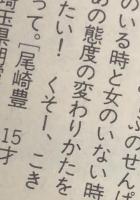 ぶのせんぱ
のいる時と女のいない時
あの態度の変わりかたを
たい! くそー、こき
って。[尾崎豊 15才
埼玉県朝